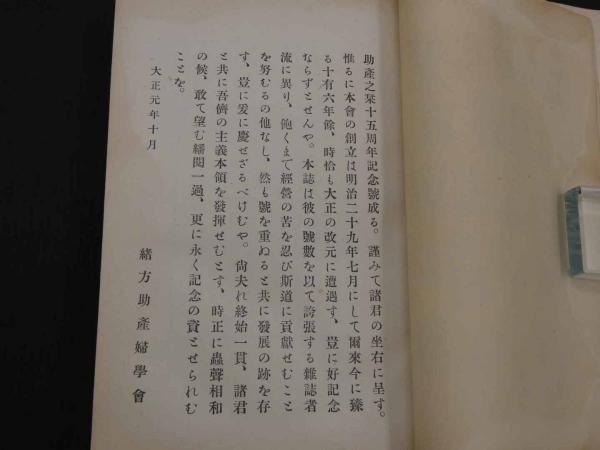 助產之栞十五周年記念號成る。謹みて諸君の坐右に呈す。
惟るに本會の創立は明治二十九年七月にして爾來今に臻
る十有六年餘、時恰も大正の改元に遭遇す、豈に好記念
ならずとせんや。本誌は彼の號數を以て誇張する雜誌者
流に異り、飽くまで經營の苦を忍び斯道に貢獻せむこと
を努むるの他なし、然も號を重ぬると共に發展の跡を存
す、豈に爰に慶せざるべけむや。尙夫れ終始一貫、諸君
と共に吾儕の主義本領を發揮せむとす、時正に蟲聲相和
の候、敢て望む繙閱一過、更に永く記念の資とせられむ
ことを。
大正元年十月
緖方助產婦學會